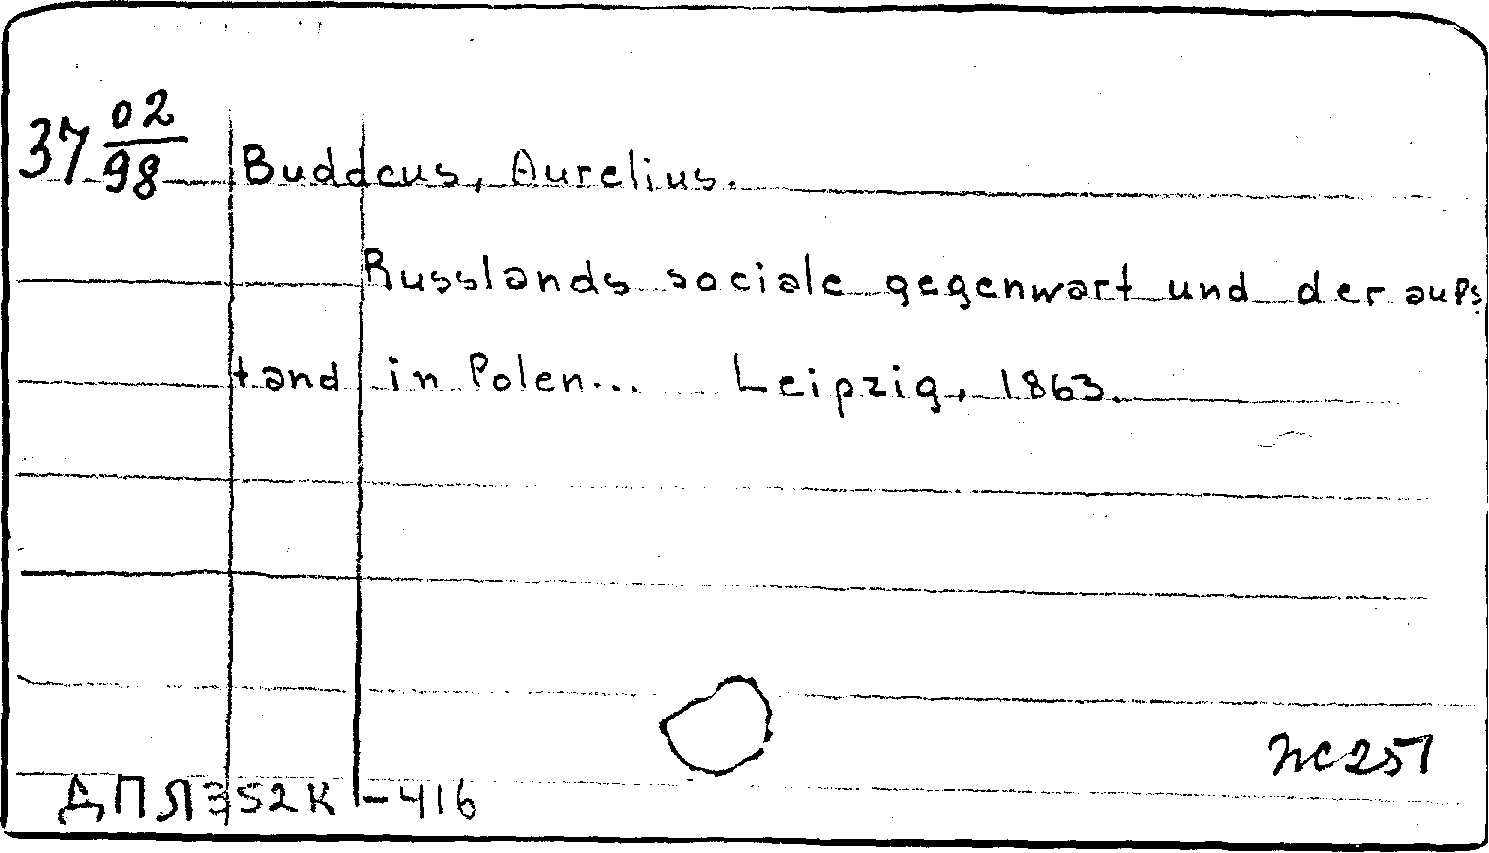 37 02/98 Buddeus, Aurelius.
Russlands sociale gegenwart und der aufs
tand in Polen... Leipzig, 1863.
ж 257
ДПЛ 352К-416